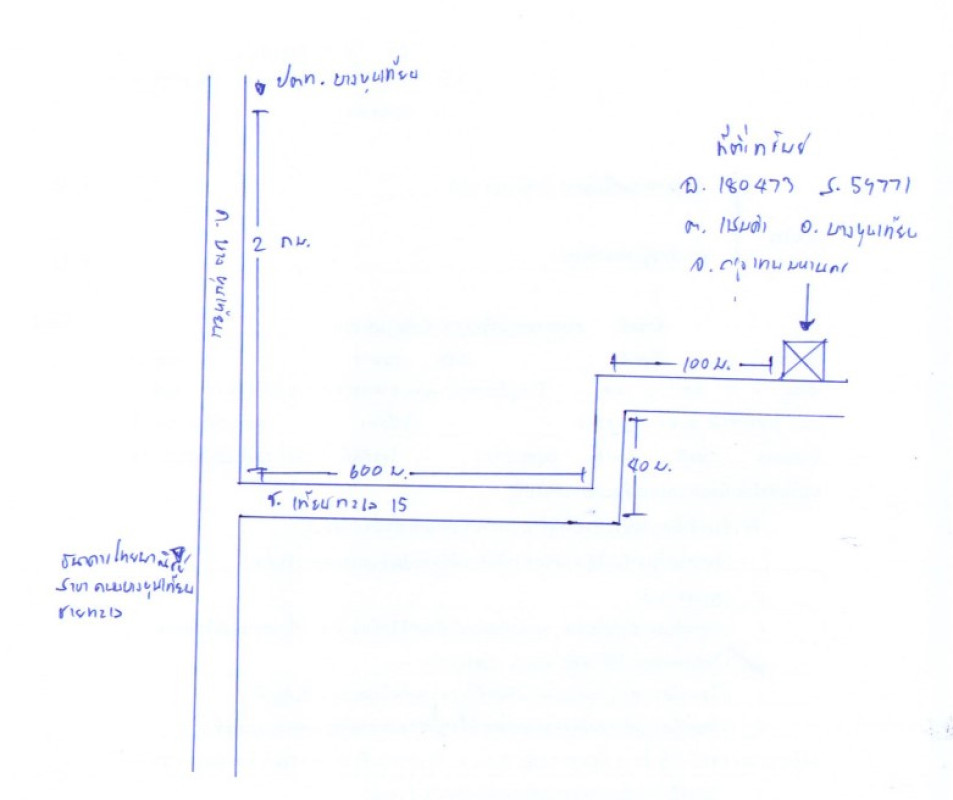 ปตท. บางขุนเทียน
ที่ตั้งทรัพย์
ฉ. 180473 ร. 59771
ต. แสมดำ อ. บางขุนเทียน
จ. กรุงเทพมหานคร
ถ. บางขุนเทียน
2 กม.
100 ม.
40 ม.
600 ม.
ซ. เทียนทะเล 15
ธนาคารไทยพาณิชย์
สาขา ถนนบางขุนเทียน
ชายทะเล